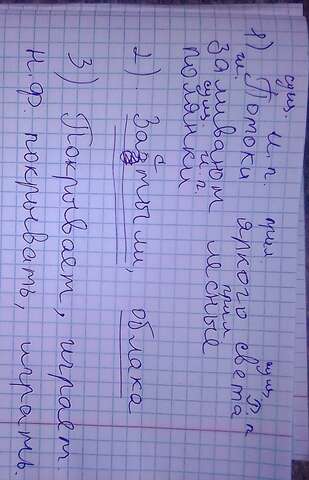 сущ. и.п. прил сущ. Р.п
1) Потоки яркого света
гл. прил
заливают лесные
сущ. и.п.
полянки
2) Застыли, облака
3) Покрывает, играет.
Н.ф. покрывать, играть.